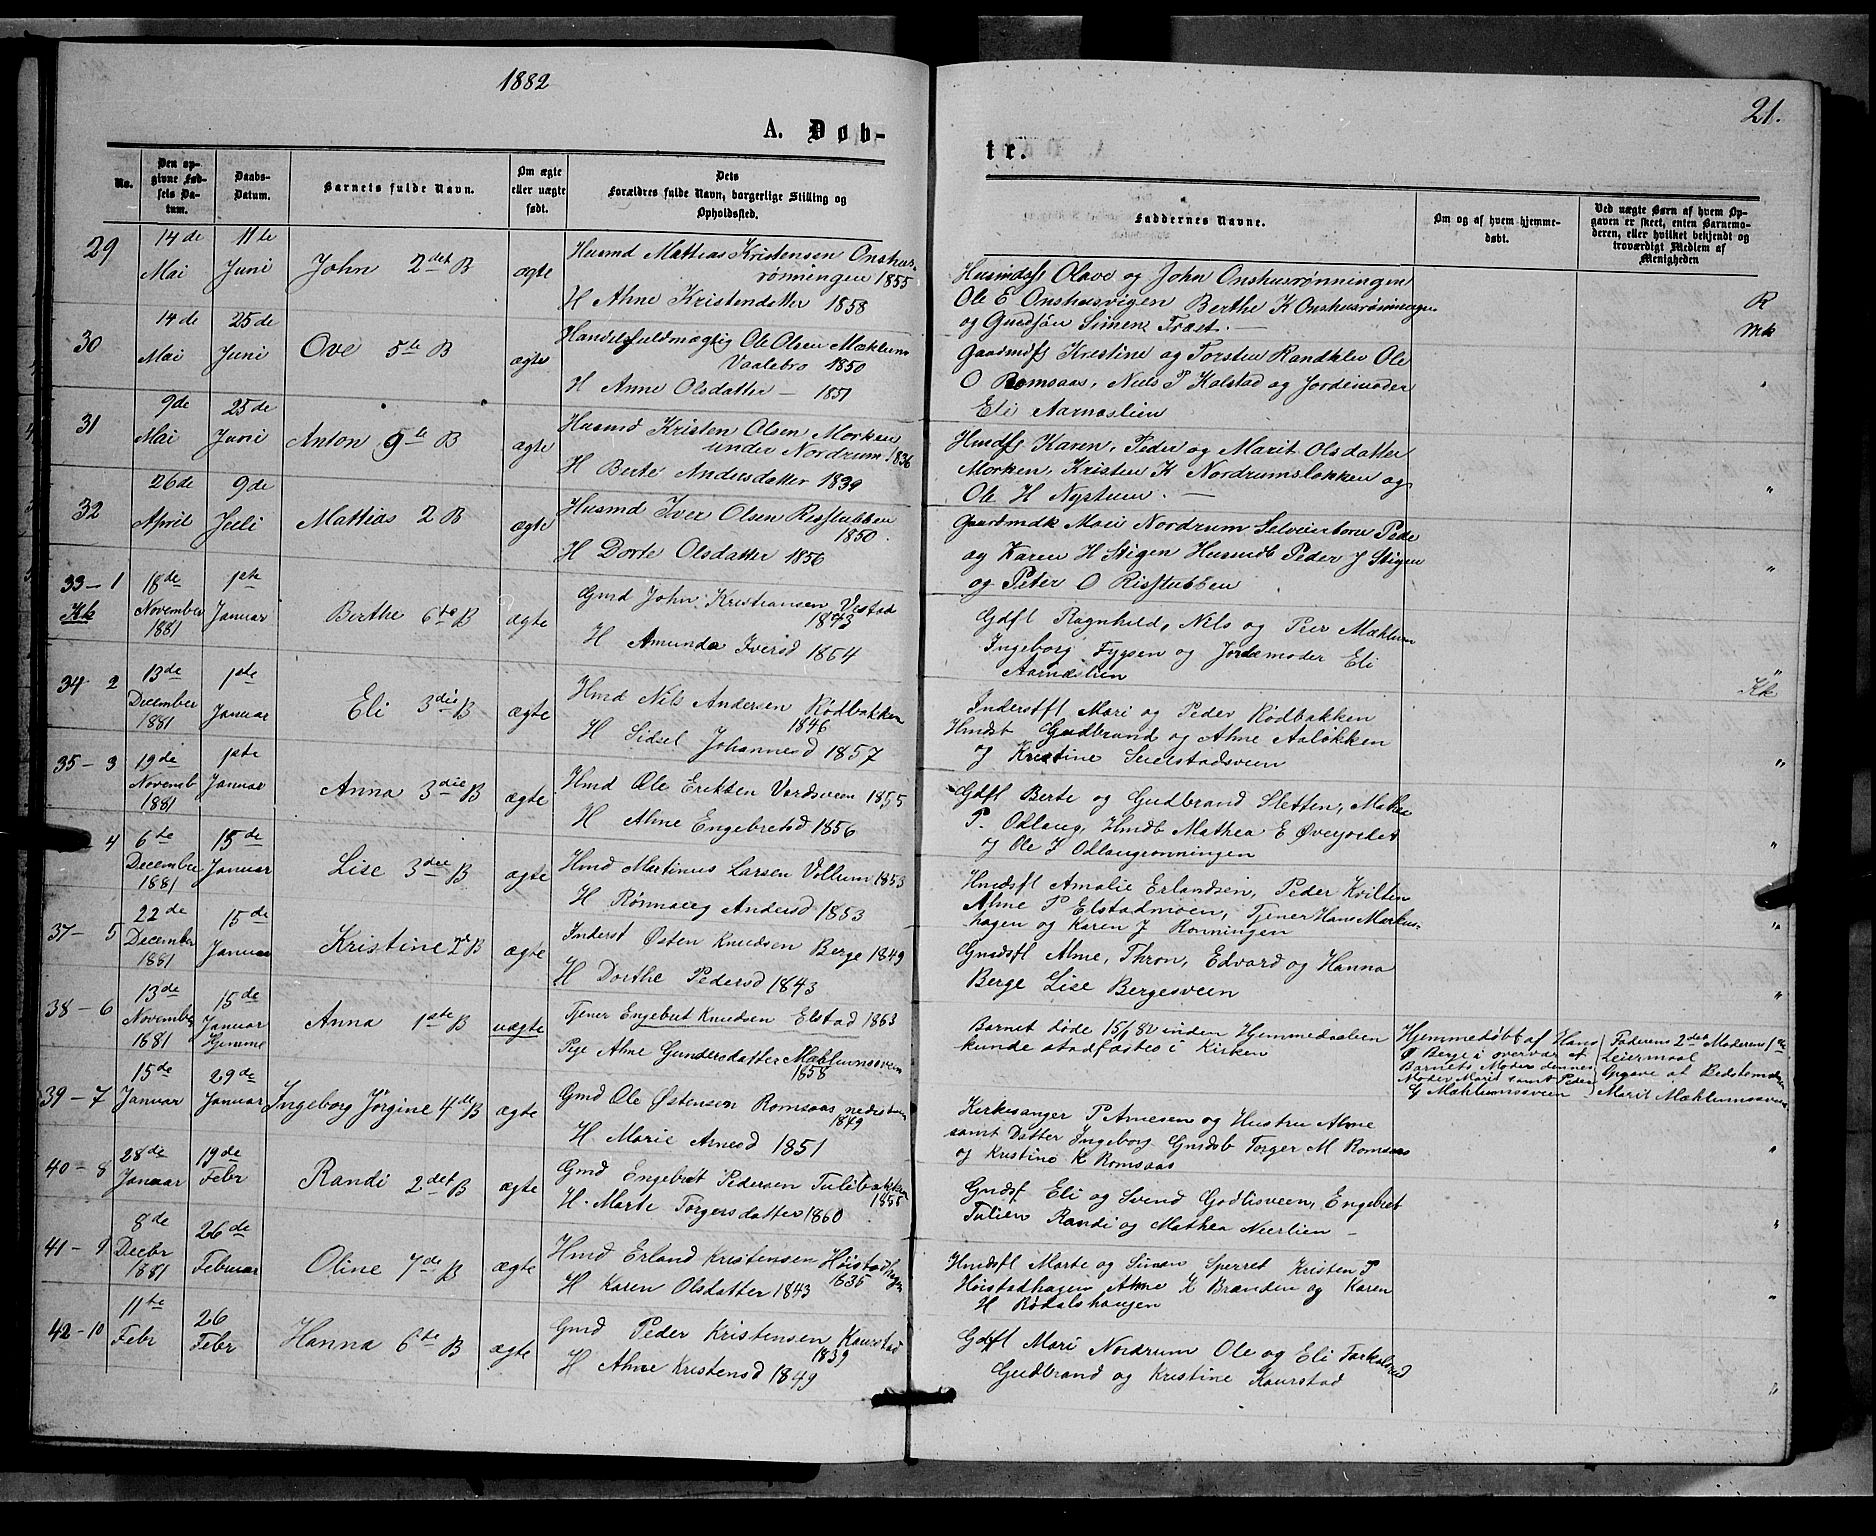 1882
21.
A. Døb-
tr.
No.
Den op-
givne Fød-
sels Da-
tum.
Daabs-
Datum.
Barnets fulde Navn.
Om ægte
eller uægte
født.
Dets
Forældres fulde Navn, borgerlige Stilling og
Opholdssted.
Faddernes Navne.
Om og af hvem hjemme-
døbt.
Ved uægte Børn af hvem Op-
gaven er skeet, enten Barnemo-
deren, eller hvilket bekjendt og
troværdigt Medlem af
Menigheden
29
14de
Mai
11te
Juni
John 2det B
ægte
Husmd Mattias Kristensen Onshus-
rønningen 1855
H Ahne Kristendatter 1858
Husmdsf Olave og John Onshusrønningen
Ole E Onshusvigen Berthe K Onshusrønningen
og Gudføn Simens Trøst. —
R
Mk
30
14de
Mai
25de
Juni
Ove 5te B
ægte
Handelsfuldmægtig Ole Olsen Mæhlum
Vaalebro 1850
H Anne Olsdatter — 1851
Gaardmdsf Kristine og Torsten Randklev Ole
O Romsaas, Niels P Kalstad og Jordemoder
Eli Aarnæslien
31
9de
Mai
25de
Juni
Anton 9te B
ægte
Husmd Kristen Olsen Morken
under Nordrum 1836
H Berte Andersdatter 1839
Hmdsf Karen, Peder og Marit Olsdatter
Morken, Kristen K Nordrumsløkken og
Ole H Nystuen. —
"
32
26de
April
9de
Juli
Mattias 2 B
ægte
Husmd Iver Olsen Risstubben
1850.
H Dorte Olsdatter 1856
Gaardmdk Mari Nordrum Selveierborn Pede
og Karen H Stigen Husmdb Peder J Stigen
og Peter O Risstubben
"
33 - 1
Kk
18de
November
1881
1ste
Januar
Berthe 6te B
ægte
Gmd John Kristiansen Vestad
1843
H Amunda Iversd 1854
Gdfl Ragnhild, Nils og Peer Mæhlum
Ingeborg Fygsen og Jordemoder Eli
Aarnæslien
"
34 - 2
13de
December
1881
1ste
Januar
Eli 3die B
ægte
Hmd Nils Andersen Rødbakken
1846
H Sidsel Johannesd 1857
Inderstfl Mari og Peder Rødbakken
Hmdsb Gudbrand og Ahne Aaløkken
og Kristine Seierstadsveen
Kk
"
35 - 3
19de
Novemb
1881
1ste
Januar
Anna 3die B
ægte
Hmd Ole Eriksen Vordsveen 1855
H Ahne Engebretsd 1856
Gdfl Berte og Gudbrand Sletten, Mathea
P. Odlaug, Hmdb Mathea E Øverjordet
og Ole J Odlaugrønningen
"
4
6te
December
1881
15de
Januar
Lise 3die B
ægte
Hmd Martinus Larsen Vollum 1853
H Rønnaug Andersd 1853
Hmdsfl Amalie Erlandsen, Peder Kvilten
Ahne P Elstadmoen, Tjener Hans Mærkus-
hagen og Karen J Rønningen
"
37 - 5
22de
December
1881
15de
Januar
Kristine 2det B
ægte
Inderst Østen Knudsen Berge 1849
H Dorthe Pedersd 1843
Gmdsfl Ahne, Thron, Edvard og Hanna
Berge Lise Bergesveen
"
38 - 6
13de
November
1881
15de
Januar
Hjemme
Anna 1ste B
uægte
Tjener Engebret Knudsen Elstad 1863
Pige Ahne Gundersdatter Mæhlumsveen
1858
Barnet døde 15/1 82 inden Hjemmedaaben
kunde stadfæstes i Kirken
Hjemmedøbt af Hans
O Berge i overvær af
Barnets Moder dennes
Moder Marit samt Peder
G Mæhlumsveen
Faderens 2det Moderens 1ste
Leiermaal
Opgave af Bedstemoderen
Marit Mæhlumsveen
39 - 7
15de
Januar
29de
Januar
Ingeborg Jørgine 4de B
ægte
Gmd Ole Østensen Romsaas nedistuen
1849
H Marie Arnesd 1851
Kirkesanger P Arnesen og Hustru Ahne
samt Datter Ingeborg Gmdsb Torger M Romsaas
og Kristine K Romsaas
"
40 - 8
28de
Januar
19de
Febr
Randi 2det B
ægte
Gmd Engebret Pedersen Tulibakken
1855
H. Marte Torgersdatter 1860
Gmdsf Eli og Svend Godlisveen, Engebret
Tulien Randi og Mathea Neerlien —
"
41 - 9
8de
Decbr
1881
26de
Februar
Oline 7de B
ægte
Hmd Erland Kristensen Høistadhagen
1835
H Karen Olsdatter 1843
Hmdsfl Marte og Simen Sperret Kristen P
Høistadhagen Ahne K Branden og Karen
H Rødalshaugen
"
42 - 10
11te
Febr
26
Febr
Hanna 6te B
ægte
Gmd Peder Kristensen Kaurstad
1839
H Ahne Kristensd 1849
Gdfl Mari Nordrum Ole og Eli Torkelsrud
Gudbrand og Kristine Kaurstad
"